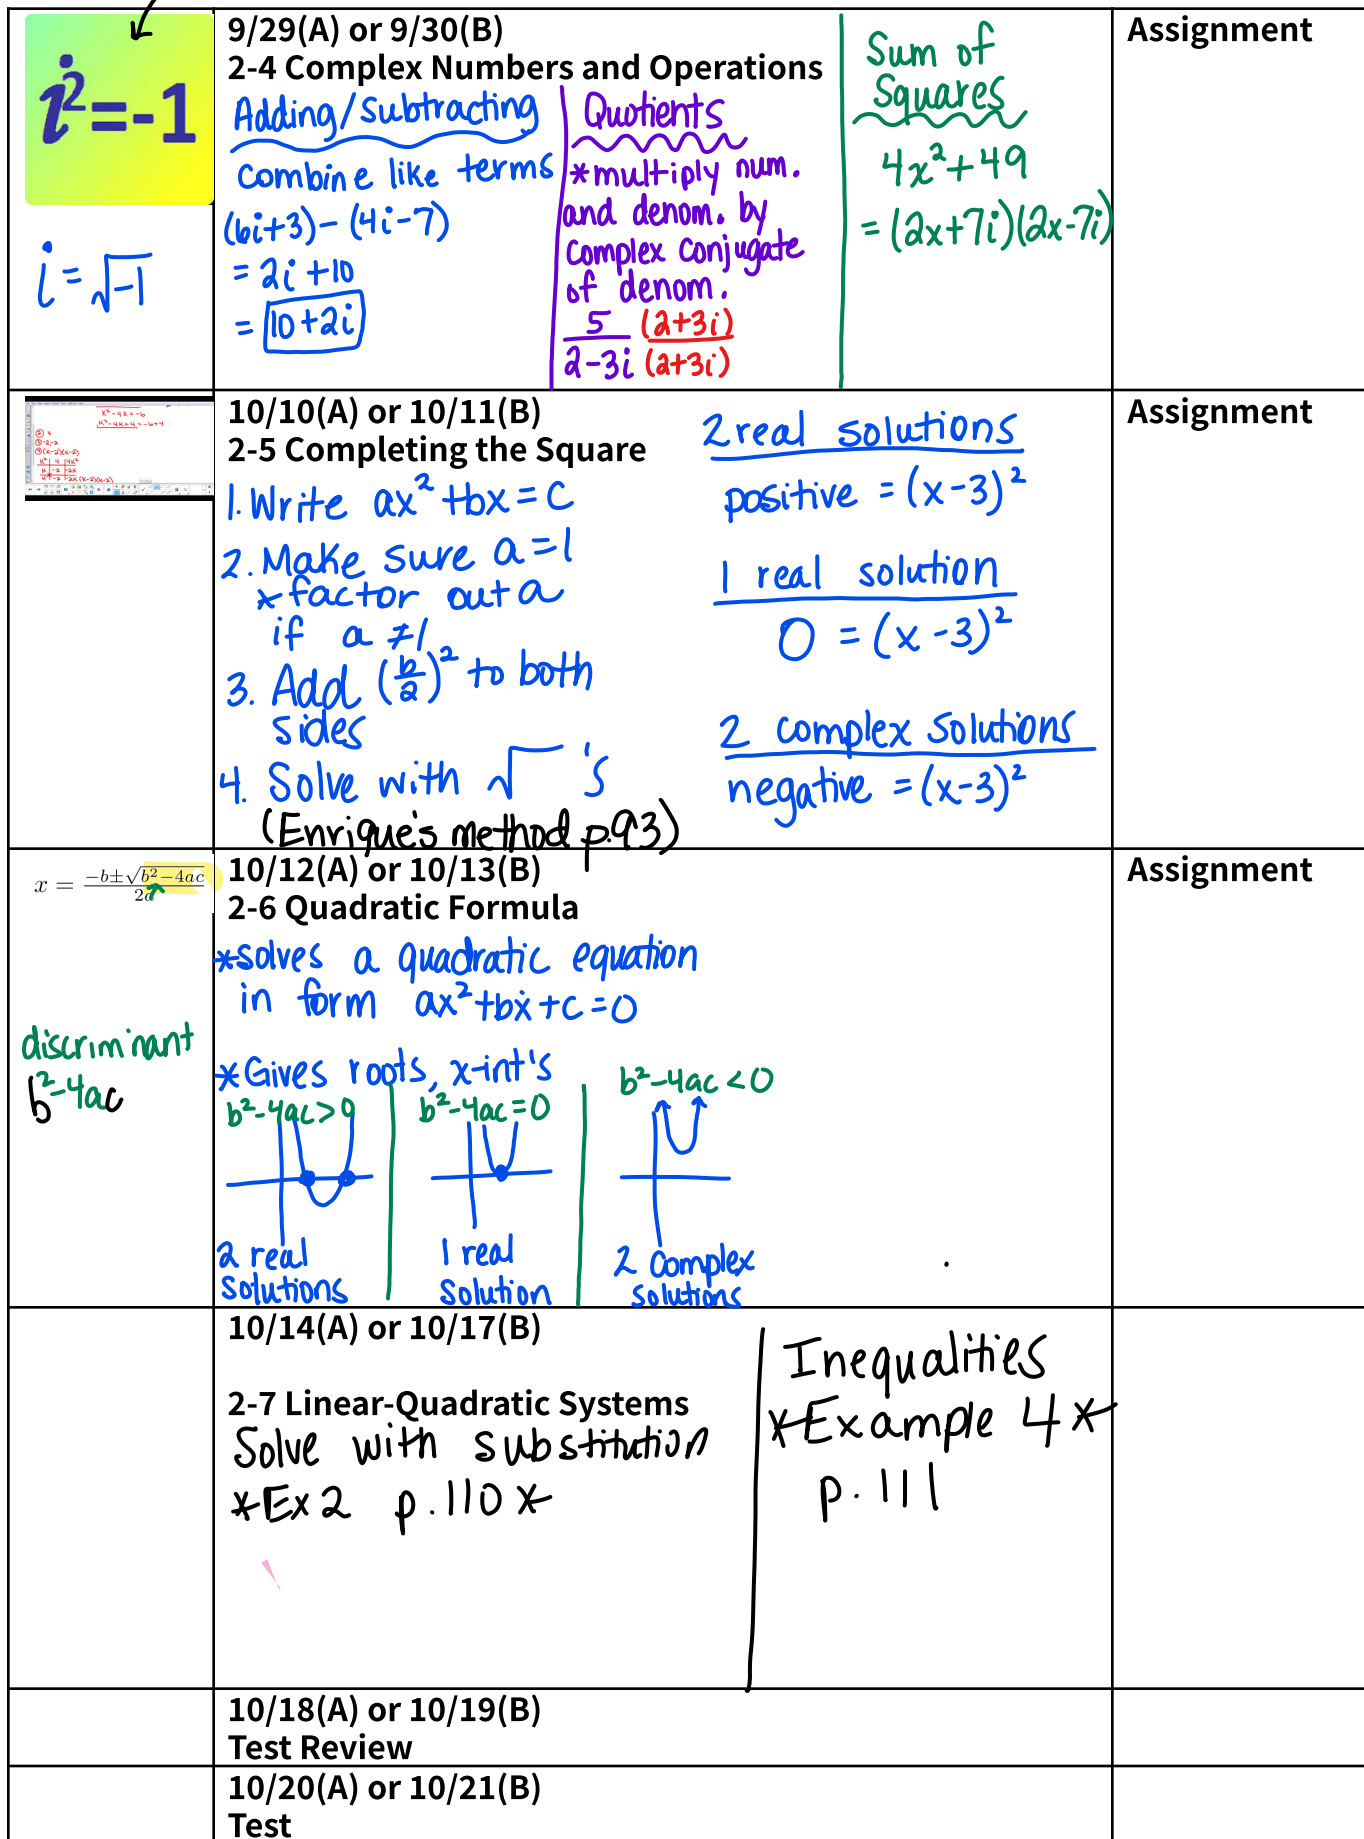 i²=-1
i = √-1
9/29(A) or 9/30(B)
2-4 Complex Numbers and Operations
Adding/Subtracting
Combine like terms
(6i+3)-(4i-7)
= 2i+10
= 10+2i
Quotients
*multiply num.
and denom. by
complex conjugate
of denom.
5 (2+3i)
2-3i (2+3i)
Sum of
Squares
4x²+49
=(2x+7i)(2x-7i)
Assignment
K²-4K=-6
K²-4K+4=-6+4
10/10(A) or 10/11(B)
2-5 Completing the Square
1. Write ax²+bx=c
2. Make sure a=1
*factor out a
if a≠1
3. Add (b/2)² to both
sides
4. Solve with √ 's
(Enrique's method p.93)
2 real solutions
positive = (x-3)²
1 real solution
0 = (x-3)²
2 complex solutions
negative = (x-3)²
Assignment
x = -b±√b²-4ac
2a
discriminant
b²-4ac
10/12(A) or 10/13(B)
2-6 Quadratic Formula
*solves a quadratic equation
in form ax²+bx+c=0
*Gives roots, x-int's
b²-4ac>0
2 real
solutions
b²-4ac=0
1 real
solution
b²-4ac<0
2 complex
solutions
Assignment
10/14(A) or 10/17(B)
2-7 Linear-Quadratic Systems
Solve with substitution
*Ex2 p.110*
Inequalities
*Example 4*
p.111
10/18(A) or 10/19(B)
Test Review
10/20(A) or 10/21(B)
Test